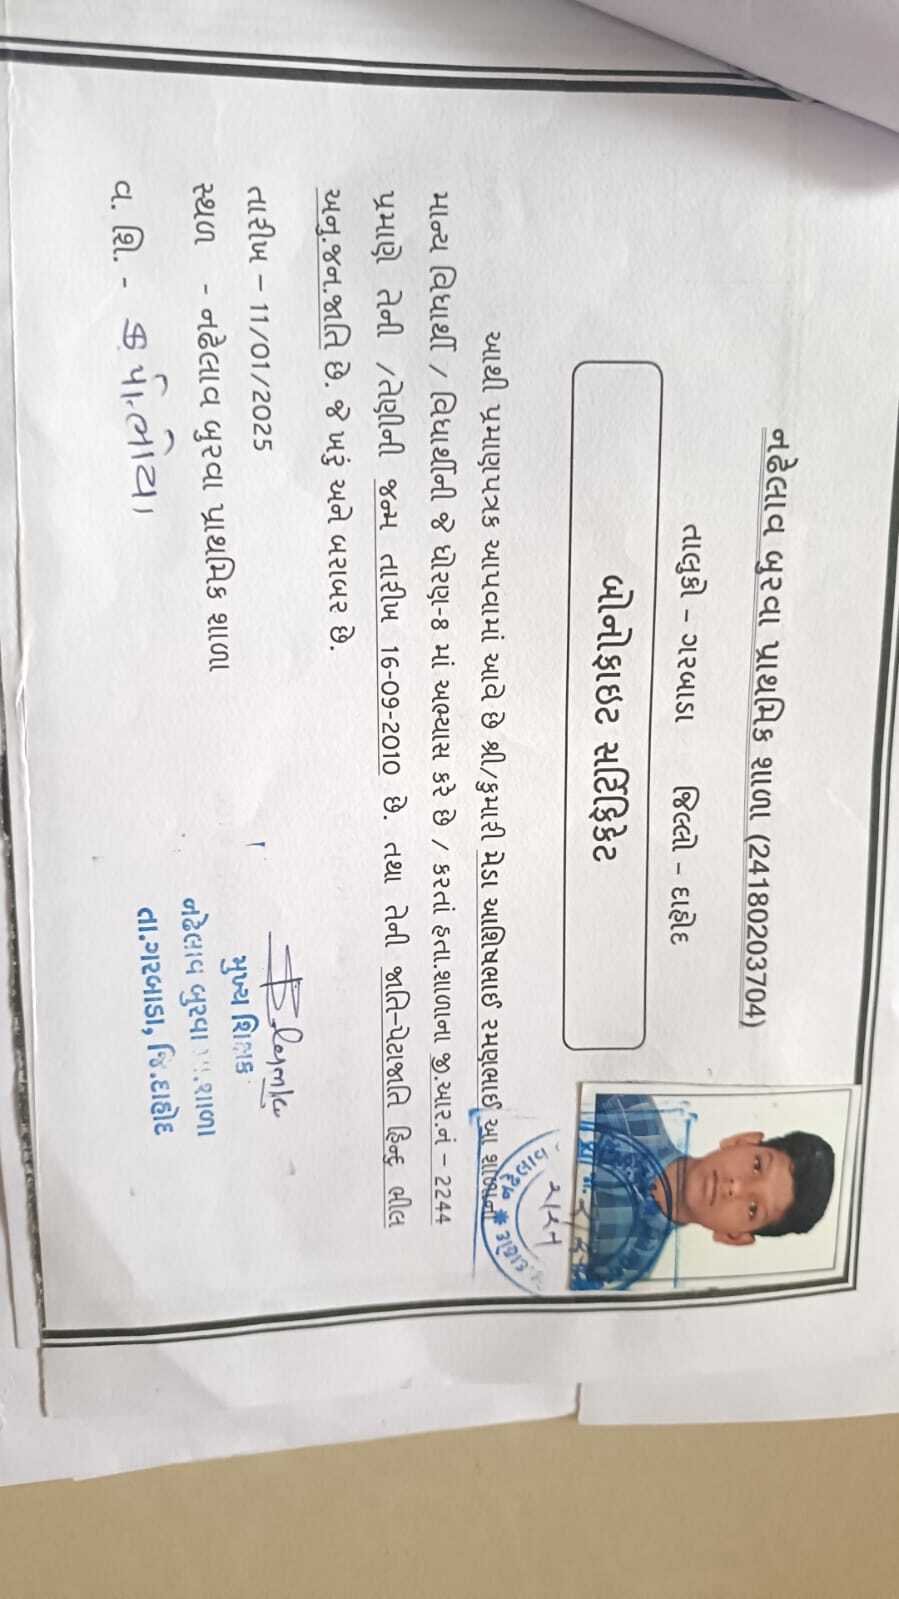 નઢેલાવ બુરવા પ્રાથમિક શાળા (24180203704)
તાલુકો - ગરબાડા જિલ્લો - દાહોદ
બોનોફાઇટ સર્ટિફિકેટ
આથી પ્રમાણપત્રક આપવામાં આવે છે શ્રી/કુમારી મેડા આશિષભાઈ રમણભાઈ આ શાળાના
માન્ય વિધાર્થી / વિધાર્થીની જે ધોરણ-8 માં અભ્યાસ કરે છે / કરતાં હતા.શાળાના જી.આર.નં - 2244
પ્રમાણે તેની /તેણીની જન્મ તારીખ 16-09-2010 છે. તથા તેની જાતિ-પેટાજાતિ હિન્દુ ભીલ
અનુ.જન.જાતિ છે. જે ખરું અને બરાબર છે.
તારીખ - 11/01/2025
સ્થળ - નઢેલાવ બુરવા પ્રાથમિક શાળા
વ. શિ. -
મુખ્ય શિક્ષક
નઢેલાવ બુરવા પ્રા.શાળા
તા.ગરબાડા, જિ.દાહોદ